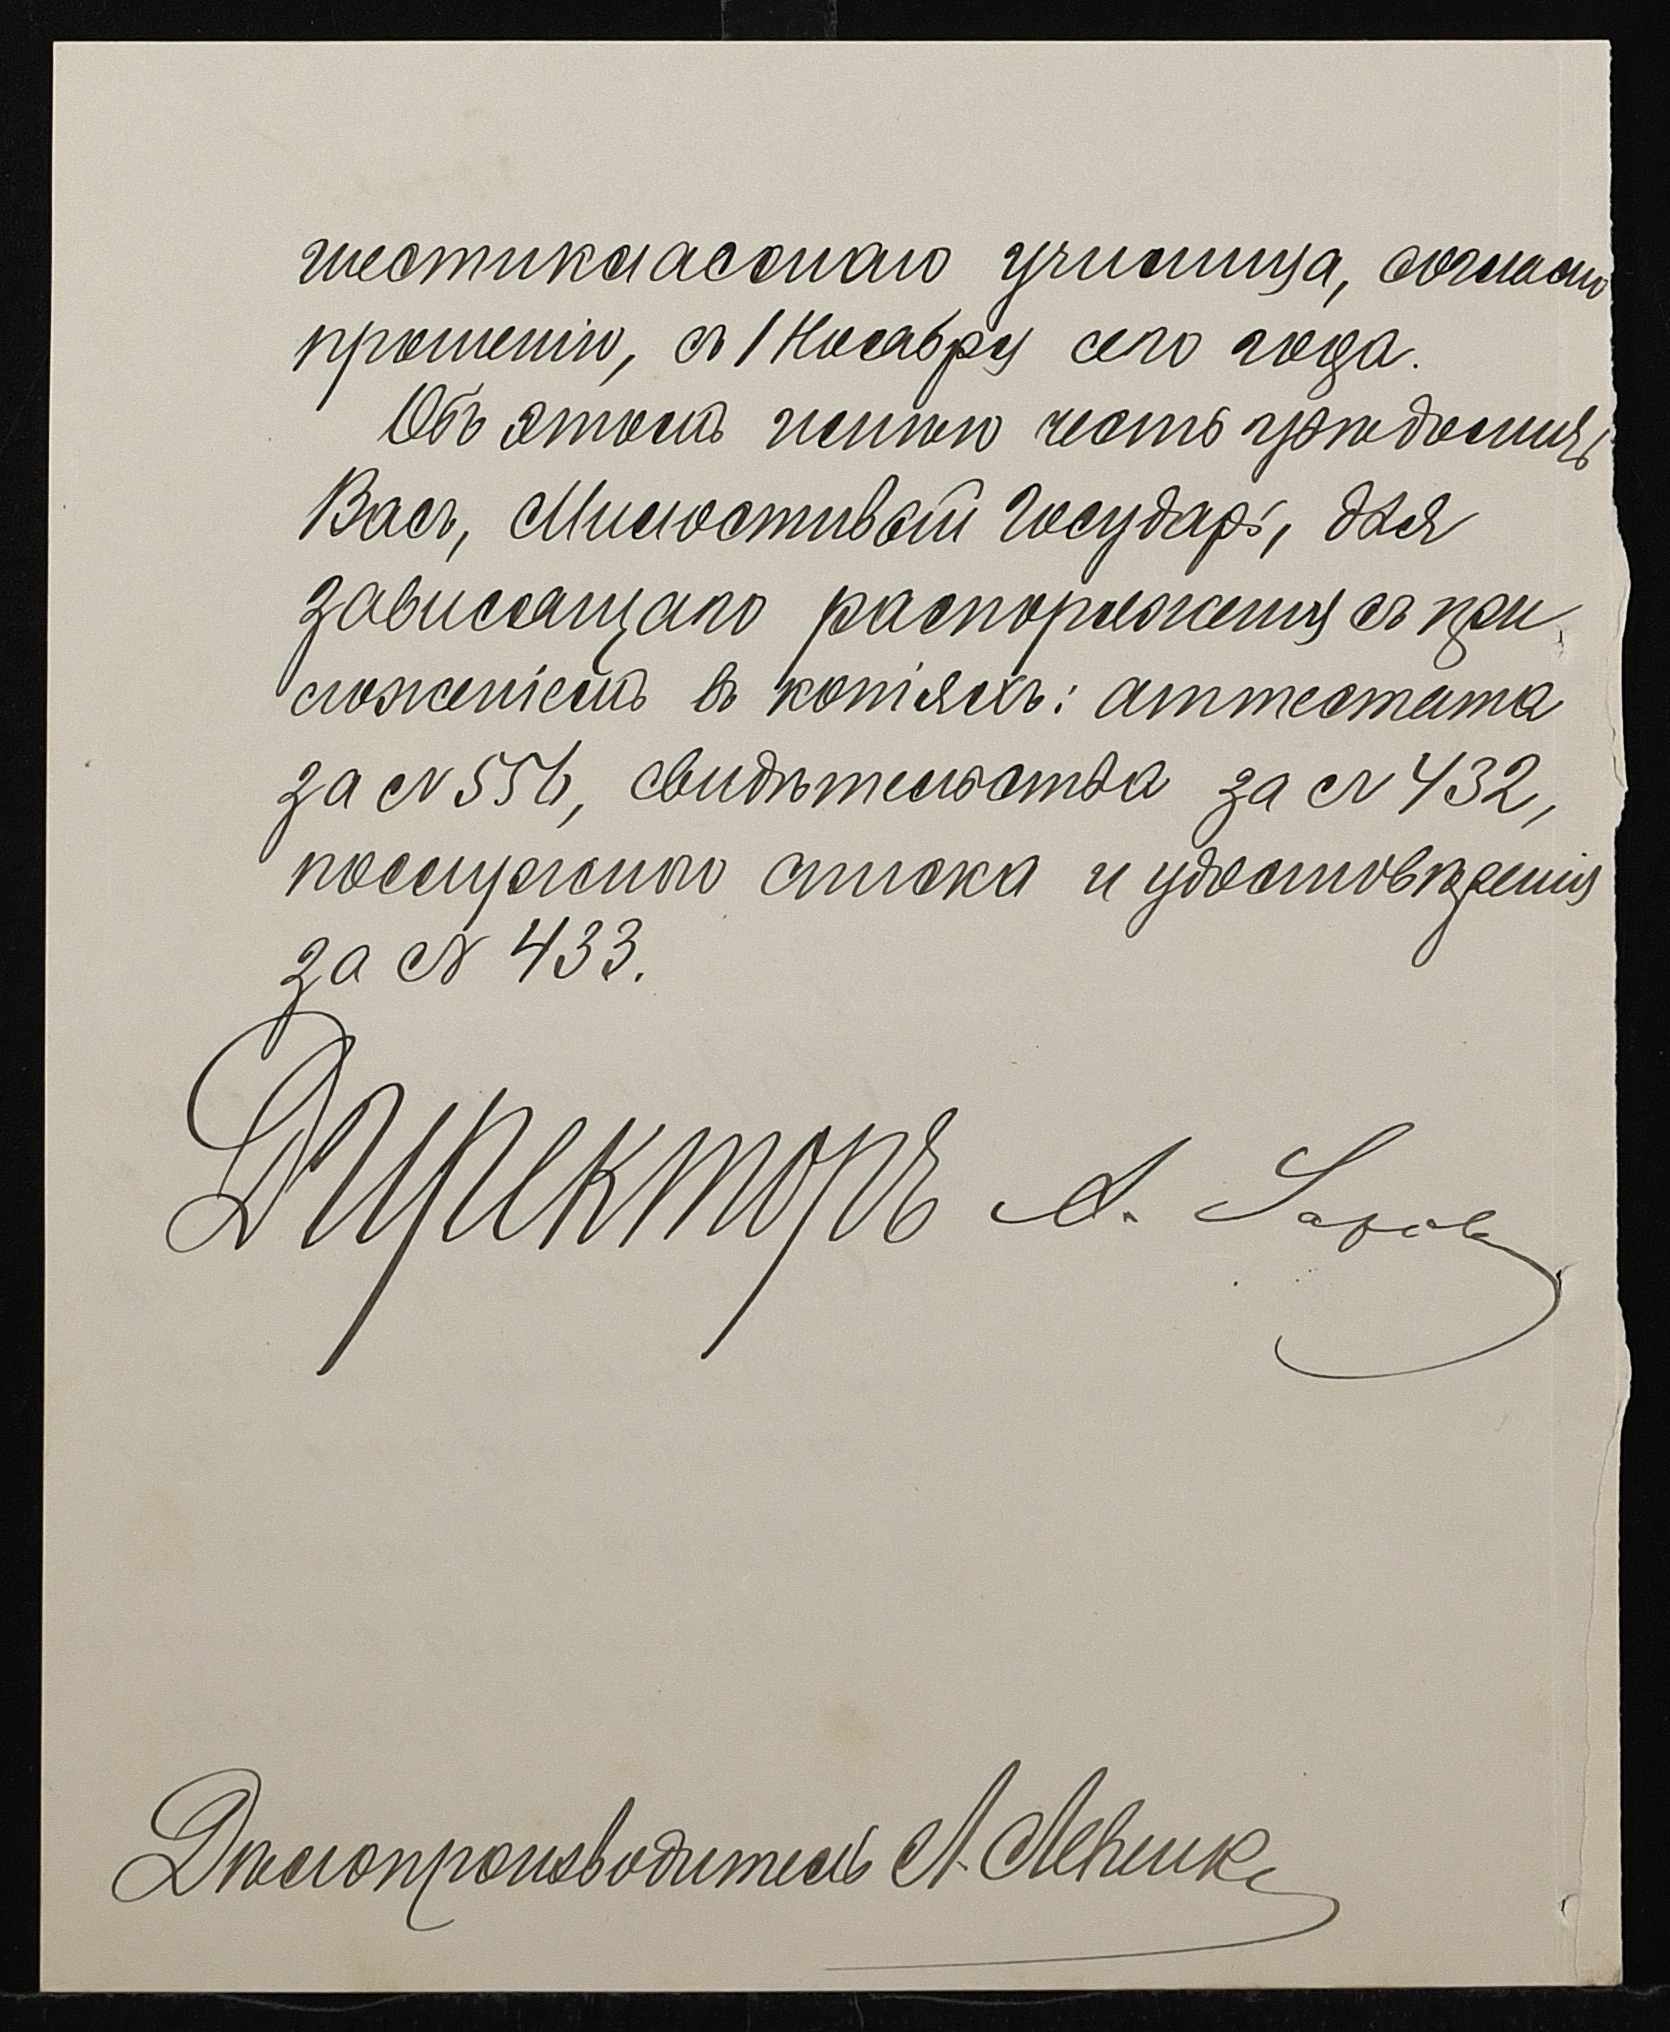 шестикласснаго училища, согласно
прошенію, съ 1 Ноября сего года.
Объ этомъ имѣю честь увѣдомить
Васъ, Милостивый Государь, для
зависящаго распоряженія съ при
ложеніемъ въ копіяхъ: аттестата
за № 556, свидѣтельства за № 432,
послужного списка и удостовѣренія
за № 433.
Директоръ А.
Дѣлопроизводитель А.